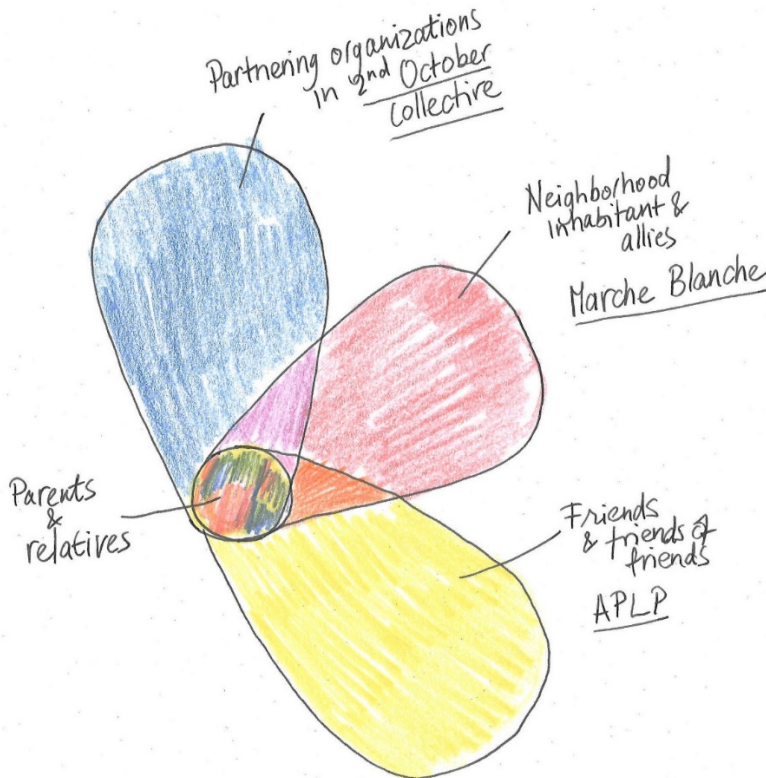 Partnering organizations
in 2nd October
collective
Neighborhood
inhabitant &
allies
Marche Blanche
Parents
&
relatives
Friends
& friends of
friends
APLP